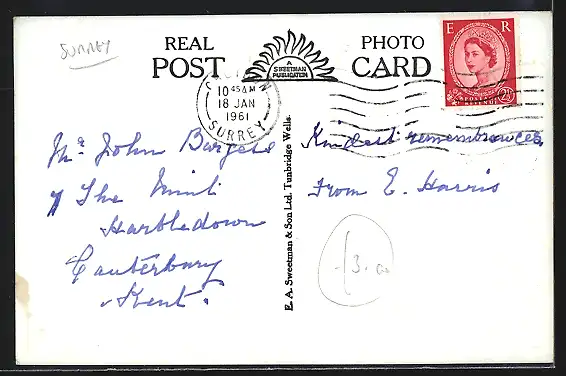 SURREY
REAL PHOTO
POST CARD
A
SWEETMAN
PUBLICATION
E R
POSTAGE
REVENUE
2½D
10 45 AM
18 JAN
1961
SURREY
Mr. John Burgess
The Mint
Harbledown
Canterbury
Kent.
E. A. Sweetman & Son Ltd. Tunbridge Wells.
Kindest remembrances,
From E. Harris
£3.00